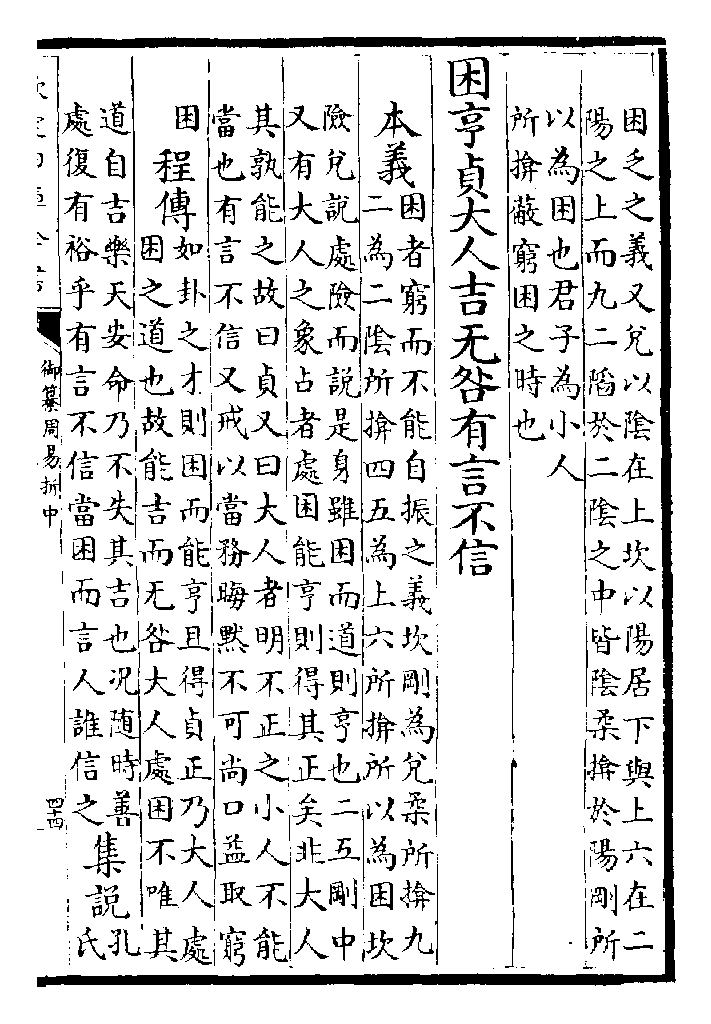 困乏之義又兌以陰在上坎以陽居下與上六在二
陽之上而九二陷於二陰之中皆陰柔揜於陽剛所
以為困也君子為小人
所揜蔽窮困之時也
困亨貞大人吉无咎有言不信
本義
困者窮而不能自振之義坎剛為兌柔所揜九
二為二陰所揜四五為上六所揜所以為困坎
險兌說處險而說是身雖困而道則亨也二五剛中
又有大人之象占者處困能亨則得其正矣非大人
其孰能之故曰貞又曰大人者明不正之小人不能
當也有言不信又戒以當務晦默不可尚口益取窮
困
程傳
如卦之才則困而能亨且得貞正乃大人處
困之道也故能吉而无咎大人處困不唯其
道自吉樂天安命乃不失其吉也況隨時善
處復有裕乎有言不信當困而言人誰信之
集說
孔
氏
御纂周易折中
四十四